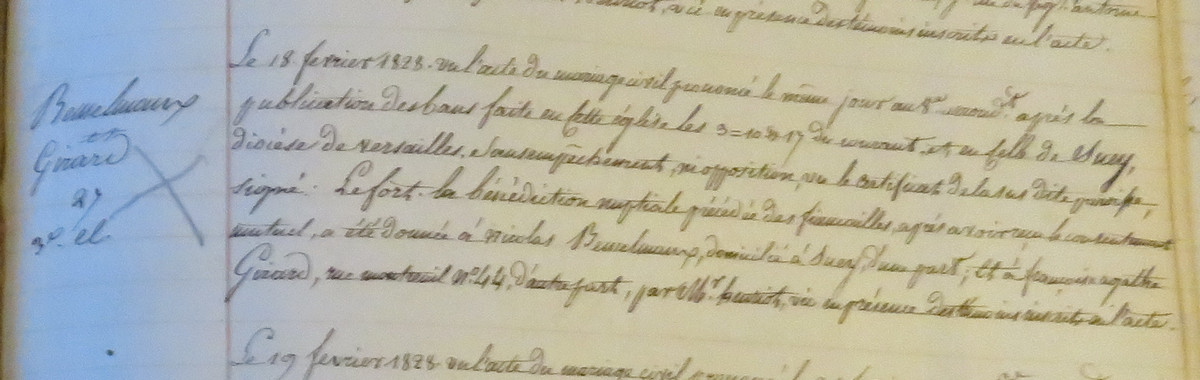 vic en présence des témoins inscrits en l'acte.
Le 18 fevrier 1828. vu l'acte du mariage civil prononcé le même jour au 8e arrondt après la
Bemelmans
et
Girard
27
3e. cl.
publication des bans faite en cette église les 3=10 & 17 du courant, et en celle de Sucy,
diocèse de versailles, sans empêchement, ni opposition, vu le certificat de la sus dite paroisse,
signé: Lefort. la bénédiction nuptiale précédée des fiancailles, après avoir reçu le consentement
mutuel, a été donnée à Nicolas, domicilié à Sucy, d'une part; Et à françoise agathe
Girard, rue montreuil n°. 44, d'autre part, par Mr. henriot, vic en présence des témoins inscrits en l'acte.
Le 19 fevrier 1828. vu l'acte du mariage civil prononcé